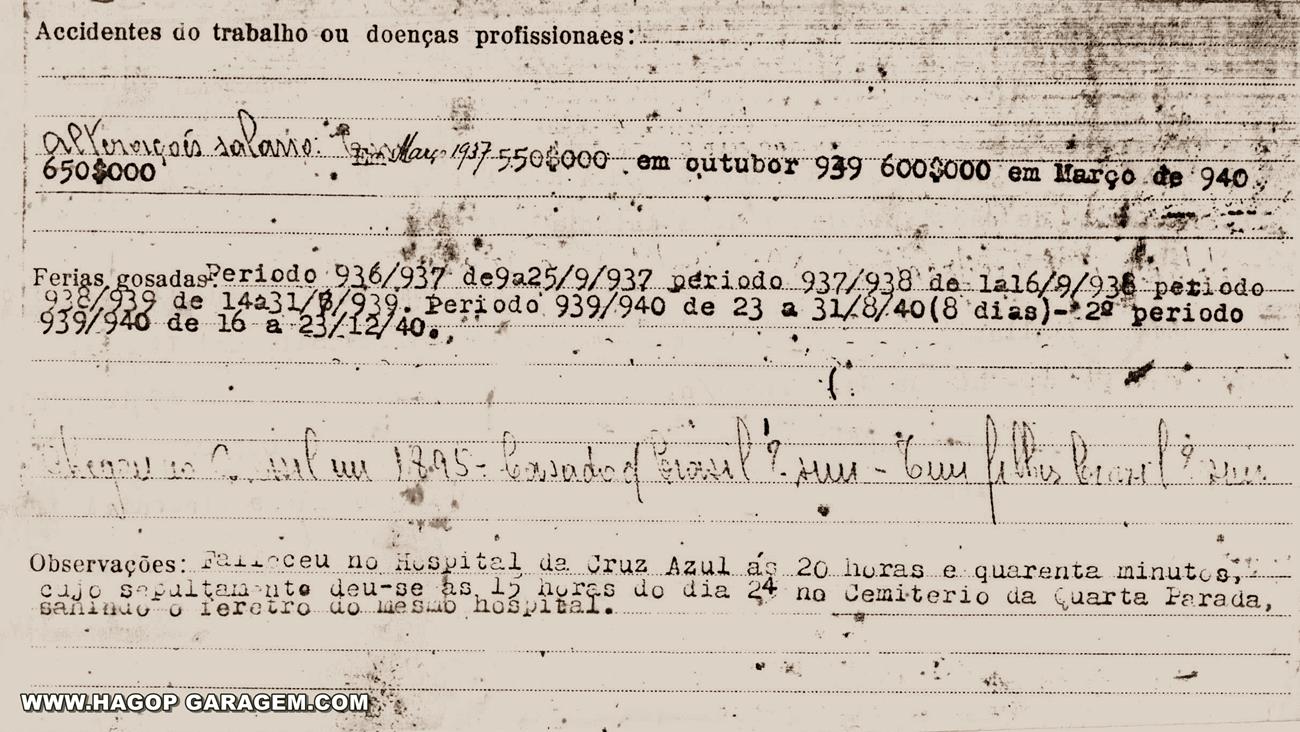 Accidentes do trabalho ou doenças profissionaes:
Alterações salario: Em Março 1937 550$000 em outubor 939 600$000 em Março de 940
650$000
Ferias gosadas: Periodo 936/937 de9a25/9/937 periodo 937/938 de 1a16/9/938 periodo
938/939 de 14a31/8/939. Periodo 939/940 de 23 a 31/8/40(8 dias)- 2º periodo
939/940 de 16 a 23/12/40.,
Chegou no Brasil em 1895 - Casado c/ Brasil? sim - Tem filhos Brasil? sim
Observações: Falleceu no Hospital da Cruz Azul ás 20 horas e quarenta minutos,
cujo sepultamento deu-se às 15 horas do dia 24 no Cemiterio da Quarta Parada,
sahindo o feretro do mesmo hospital.
WWW.HAGOP GARAGEM.COM